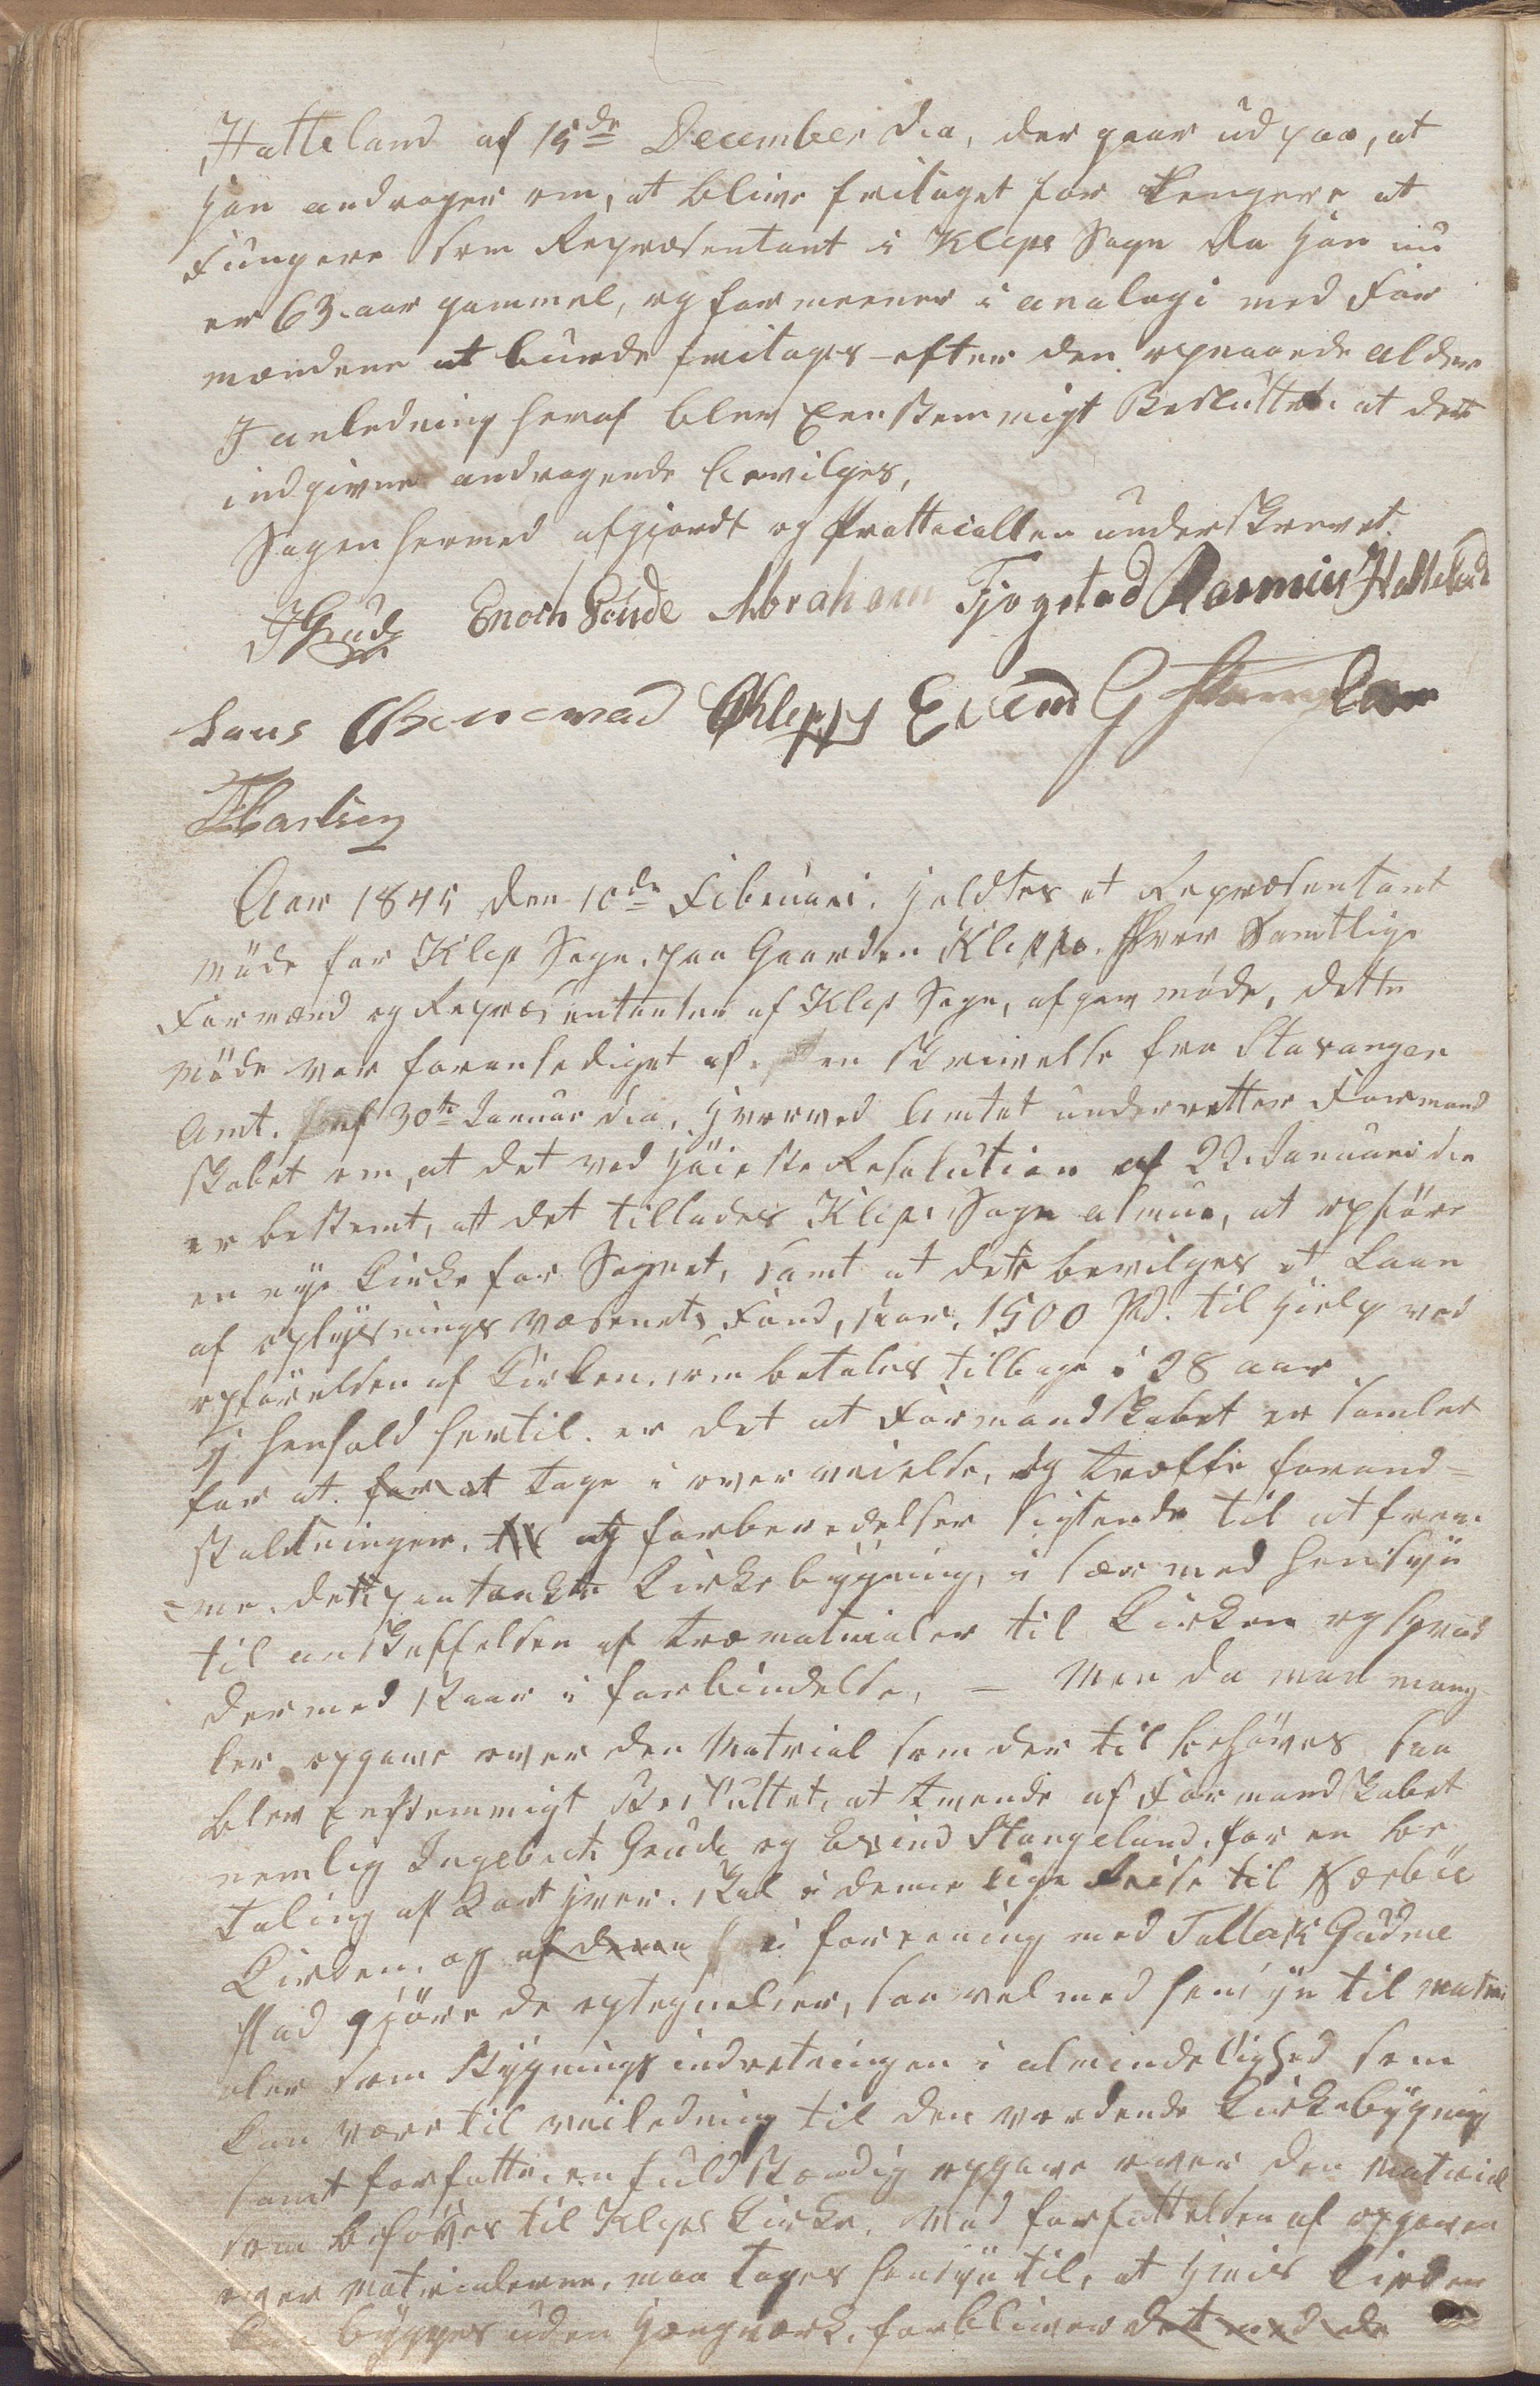 Hatteland af 15de December d.a, der gaar ud paa, at
han andrager om, at blive fritaget for længere at
Fungere som Repræsentant i Kleps Sogn da han nu
er 63 aar gammel, og formeener i analogi med For
mændene at burde fritages efter den opnaaede alder
I anledning heraf blev Eenstemmigt Besluttet at det
indgivne andragende bevilges,
Sagen hermed afgjordt og Prottocollen underskrevet.
Grude Enoch Bonde Abraham Fjogstad Rasmus Hatteland
Lars Klepp Eivind G
Aar 1845 den 10de Februari. holdtes et Repræsentant
møde for Klep Sogn. paa Gaarden Kleppe. Hvor Samtlige
Formænd og Repræsentanter af Klep Sogn, afgav møde, dette
møde var foranlediget af en skrivelse fra Stavanger
Amt. af 30te Januar d.a, hvorved Amtet underretter Formand
skabet om, at det ved høieste Resolution af 22 Januari d.a
er bestemt, at det tillades Kleps Sogn almue, at opføre
en nye Kirke for Sognet, samt at dette bevilges et Laan
af oplysnings væsenets Fond, stor. 1500 Spd. til hjelp ved
opførelsen af Kirken. som betales tilbage i 28 aar
I henhold hertil. er det at Formandskabet er samlet
for at. for at tage i overveielse, og træffe forand=
staltninger, til og forberedelser sigtende til at frem
=me. dette paatænkte Kirkebygning, i sær med hensyn
til anskaffelsen af træmaterialer til Kirken og hvad
dermed staar i forbindelse, – Men da man mang
ler opgave over den Matrial som der til behøves saa
blev Enstemmigt Besluttet, at tvende af Formandskabet
nemlig Ingebret Grude og Eivind Stangeland, for en be
taling af 2 ort hver. skal i denne uge Reise til Nærbøe
Kirken, og af denne i forreening med Tallak Gudme
stad gjøre de optegnelser, saa vel med hensyn til matri
aler som Bygnings indretningen i almindelighed som
kan være til veiledning til den vordende Kirkebygning
samt forfatte, en fuldstændig opgave over den Material
som behøves til Kleps Kirke. Med forfattelsen af opgaven
over Matrialerne, maa tages hensyn til, at hvis Kirken
kan bygges uden hængværk, forbliver det med de